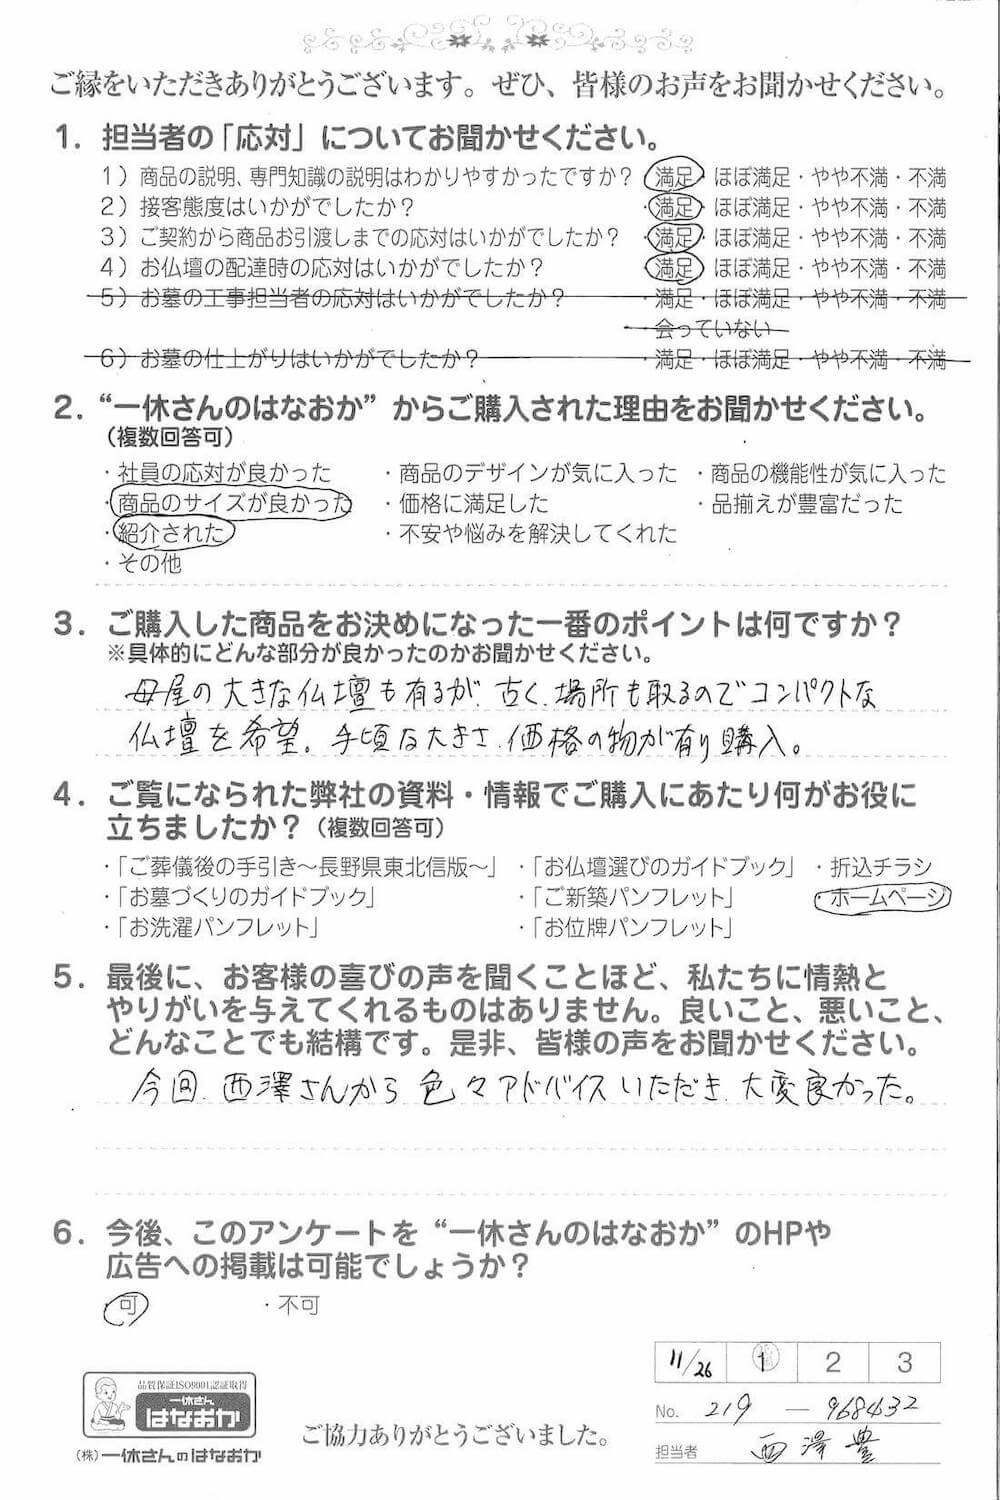 ご縁をいただきありがとうございます。ぜひ、皆様のお声をお聞かせください。
1. 担当者の「応対」についてお聞かせください。
1）商品の説明、専門知識の説明はわかりやすかったですか？ ・満足・ほぼ満足・やや不満・不満
2）接客態度はいかがでしたか？ ・満足・ほぼ満足・やや不満・不満
3）ご契約から商品お引渡しまでの応対はいかがでしたか？ ・満足・ほぼ満足・やや不満・不満
4）お仏壇の配達時の応対はいかがでしたか？ ・満足・ほぼ満足・やや不満・不満
5）お墓の工事担当者の応対はいかがでしたか？ ・満足・ほぼ満足・やや不満・不満
・会っていない
6）お墓の仕上がりはいかがでしたか？ ・満足・ほぼ満足・やや不満・不満
2. “一休さんのはなおか” からご購入された理由をお聞かせください。
（複数回答可）
・社員の応対が良かった ・商品のデザインが気に入った ・商品の機能性が気に入った
・商品のサイズが良かった ・価格に満足した ・品揃えが豊富だった
・紹介された ・不安や悩みを解決してくれた
・その他
3. ご購入した商品をお決めになった一番のポイントは何ですか？
※具体的にどんな部分が良かったのかお聞かせください。
母屋の大きな仏壇も有るが、古く、場所も取るのでコンパクトな
仏壇を希望。手頃な大きさ、価格の物が有り購入。
4. ご覧になられた弊社の資料・情報でご購入にあたり何がお役に
立ちましたか？（複数回答可）
・「ご葬儀後の手引き～長野県東北信版～」 ・「お仏壇選びのガイドブック」 ・折込チラシ
・「お墓づくりのガイドブック」 ・「ご新築パンフレット」 ・ホームページ
・「お洗濯パンフレット」 ・「お位牌パンフレット」
5. 最後に、お客様の喜びの声を聞くことほど、私たちに情熱と
やりがいを与えてくれるものはありません。良いこと、悪いこと、
どんなことでも結構です。是非、皆様の声をお聞かせください。
今回、西澤さんから色々アドバイスいただき、大変良かった。
6. 今後、このアンケートを “一休さんのはなおか” のHPや
広告への掲載は可能でしょうか？
・可 ・不可
11/26 1 2 3
品質保証ISO9001認証取得
一休さん
はなおか
（株）一休さんのはなおか
ご協力ありがとうございました。
No. 219 — 968432
担当者 西澤豊